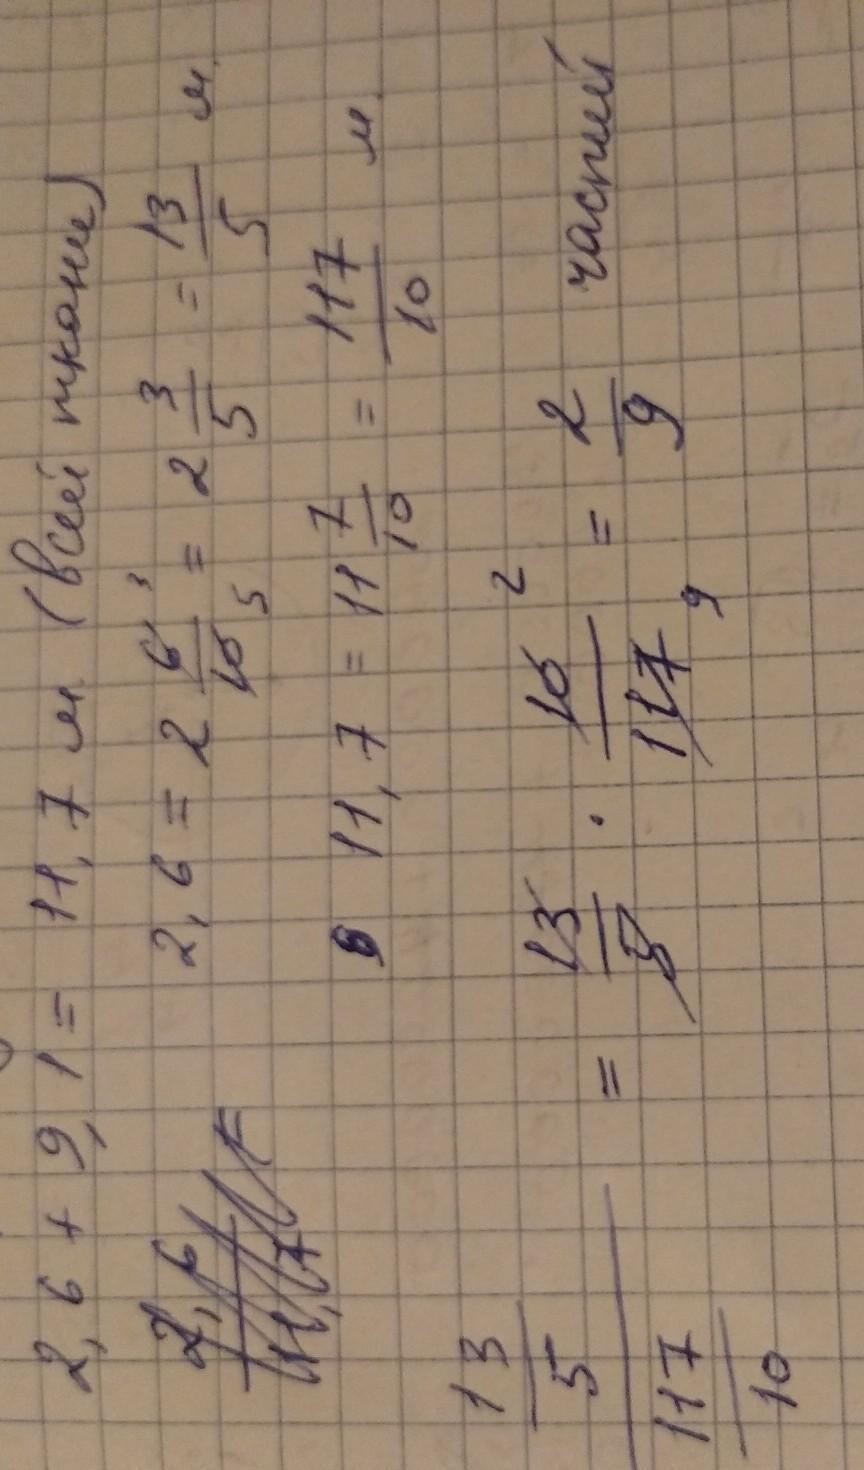 2,6 + 9,1 = 11,7 м (всей ткани)
2,6 = 2 6/10 3 5 = 2 3/5 = 13/5 м
2,6/11,7 =
11,7 = 11 7/10 = 117/10 м.
13/5 / 117/10 = 13/5 · 10/117 2 9 = 2/9 частей